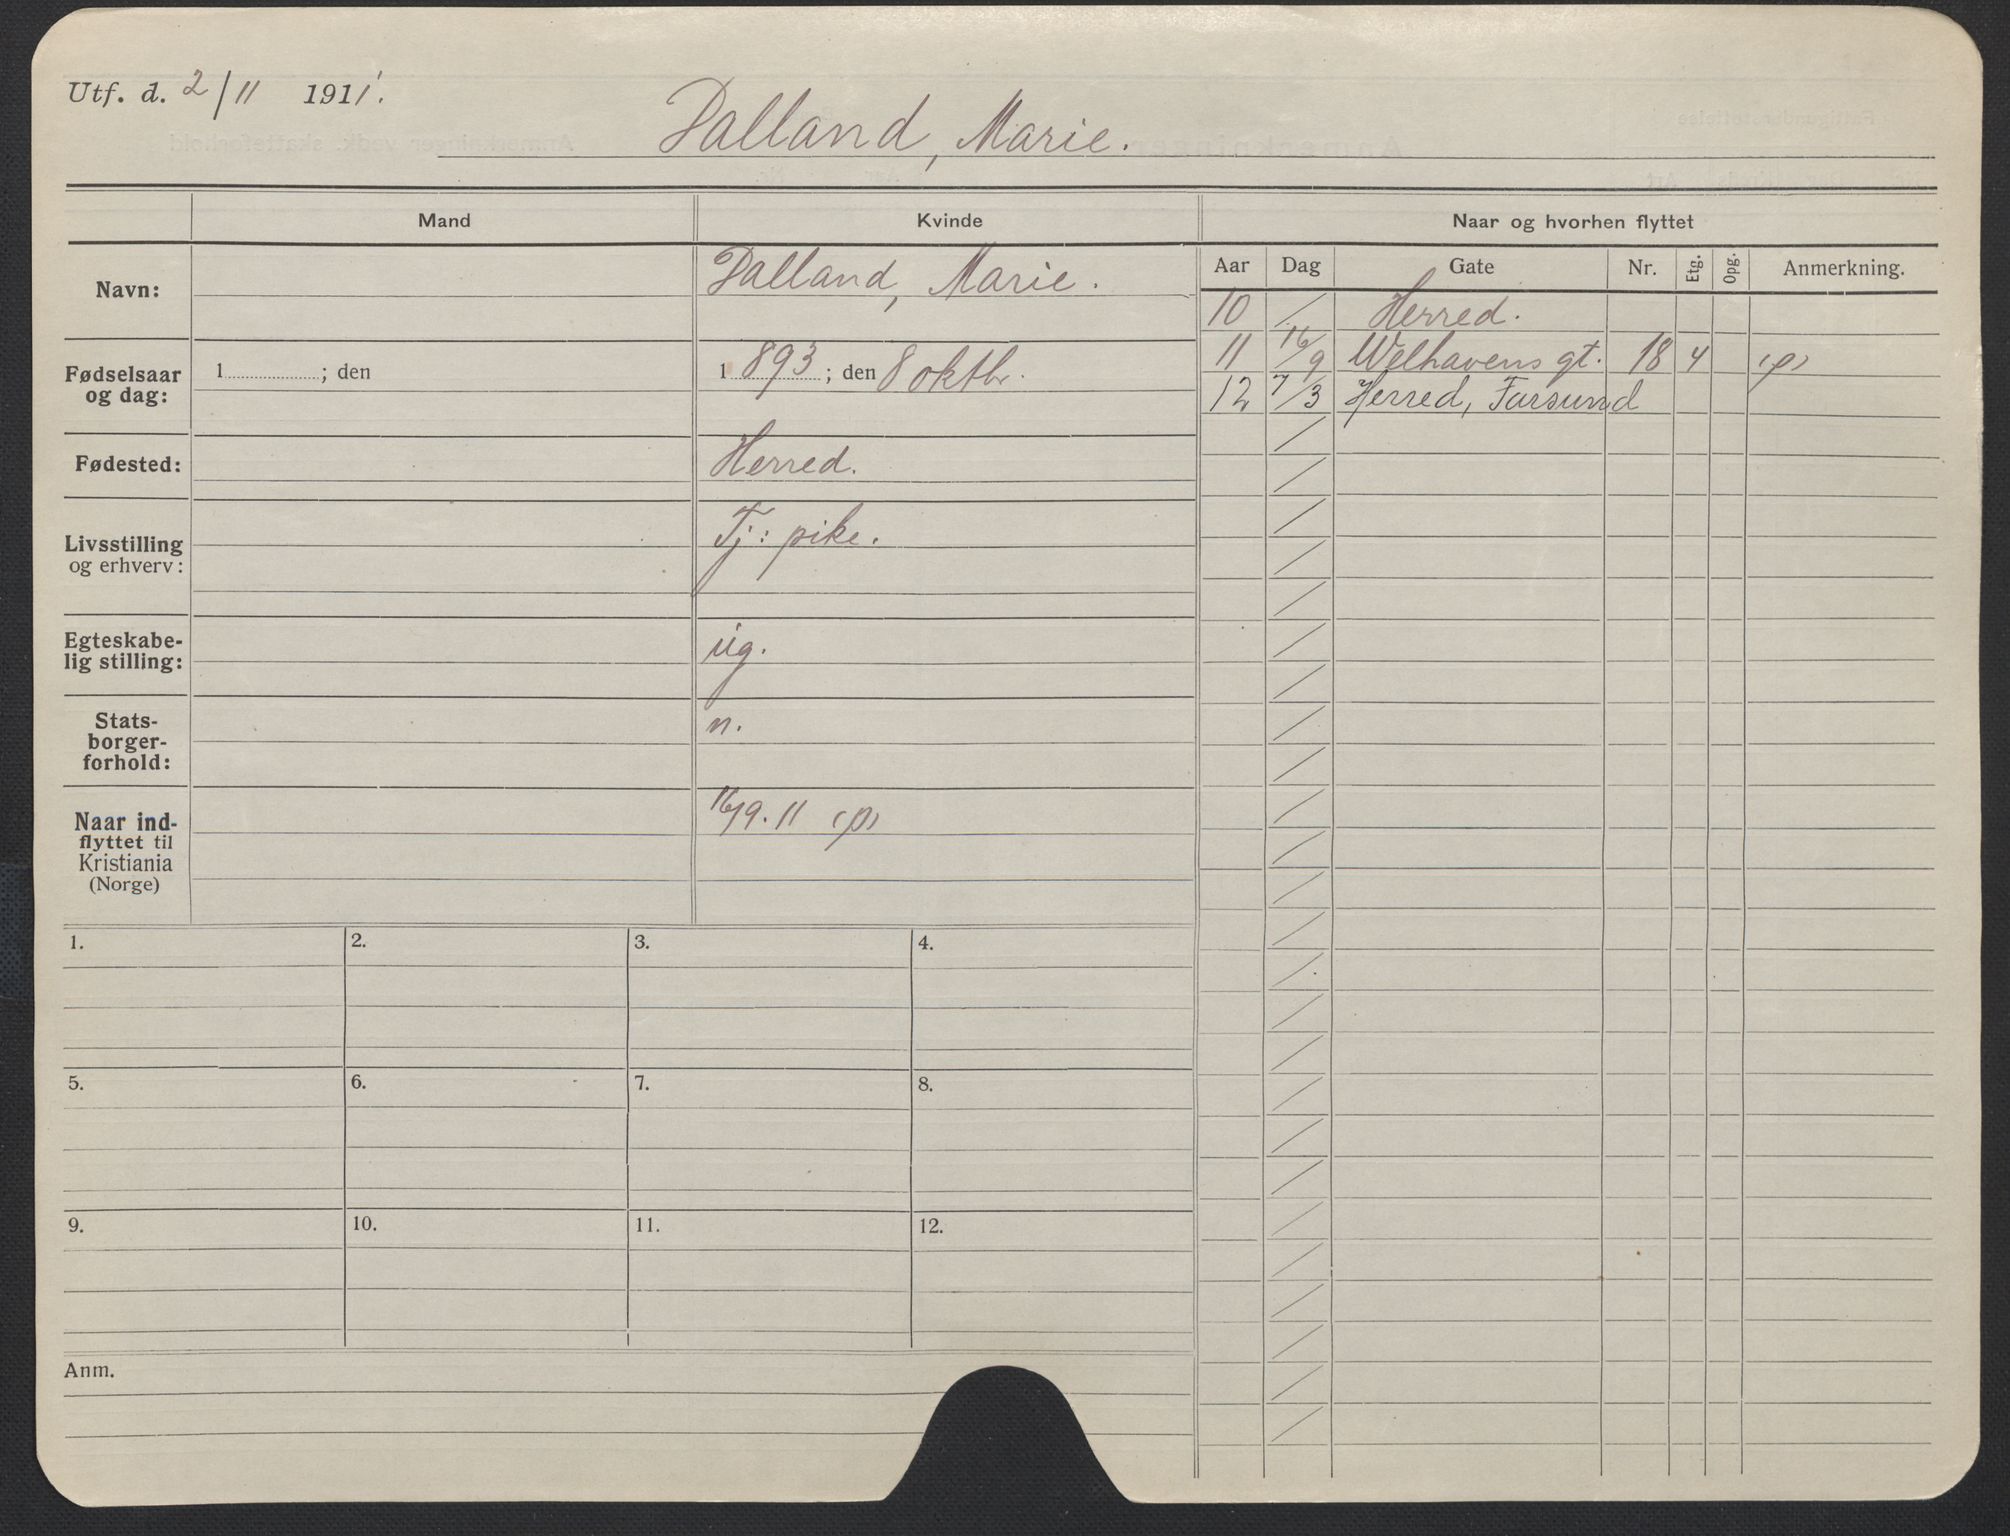 Utf. d. 2/11 1911.
Dalland, Marie.
Mand
Kvinde
Naar og hvorhen flyttet
Navn:
Dalland, Marie.
Fødselsaar og dag:
1 ; den
1 893 ; den 8 oktbr.
Fødested:
Herred.
Livsstilling og erhverv:
Tj: pike.
Egteskabe-
lig stilling:
ug.
Stats-
borger-
forhold:
n.
Naar ind-
flyttet til
Kristiania
(Norge)
16/9. 11 (p)
Aar Dag Gate Nr. Etg. Opg. Anmerkning.
10 / Herred.
11 16/9 Welhavens gt. 18 4 (p)
12 7/3 Herred, Farsund
1. 2. 3. 4.
5. 6. 7. 8.
9. 10. 11. 12.
Anm.